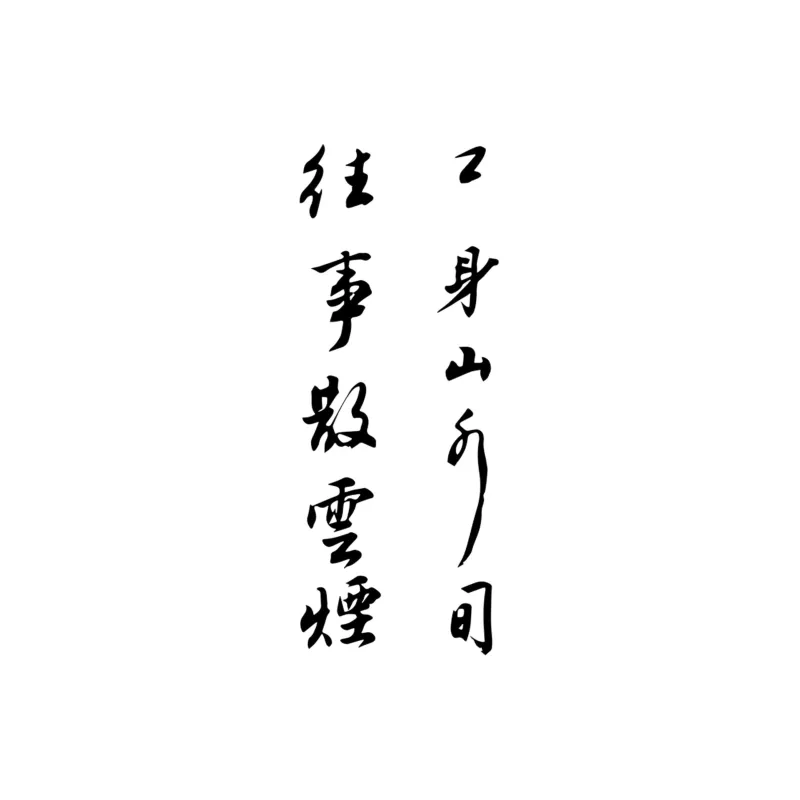 身山外
往事散雲煙